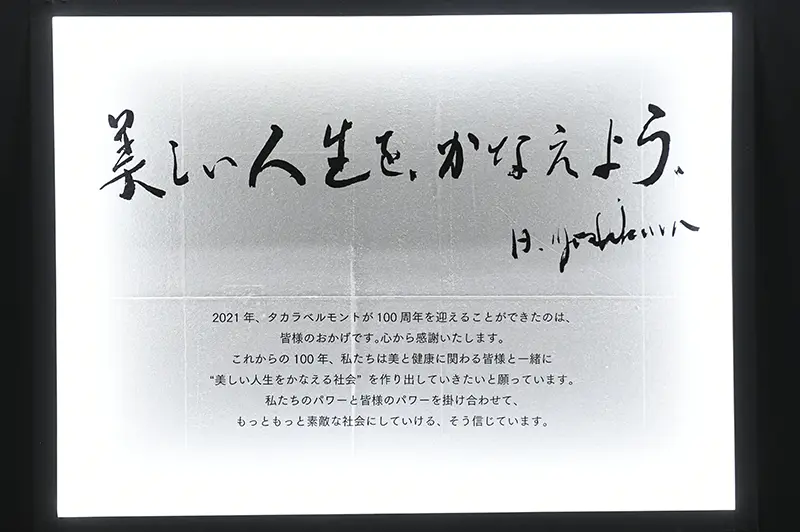 美しい人生を、かなえよう。
H. Yoshikawa
2021年、タカラベルモントが100周年を迎えることができたのは、
皆様のおかげです。心から感謝いたします。
これからの100年、私たちは美と健康に関わる皆様と一緒に
“美しい人生をかなえる社会” を作り出していきたいと願っています。
私たちのパワーと皆様のパワーを掛け合わせて、
もっともっと素敵な社会にしていける、そう信じています。